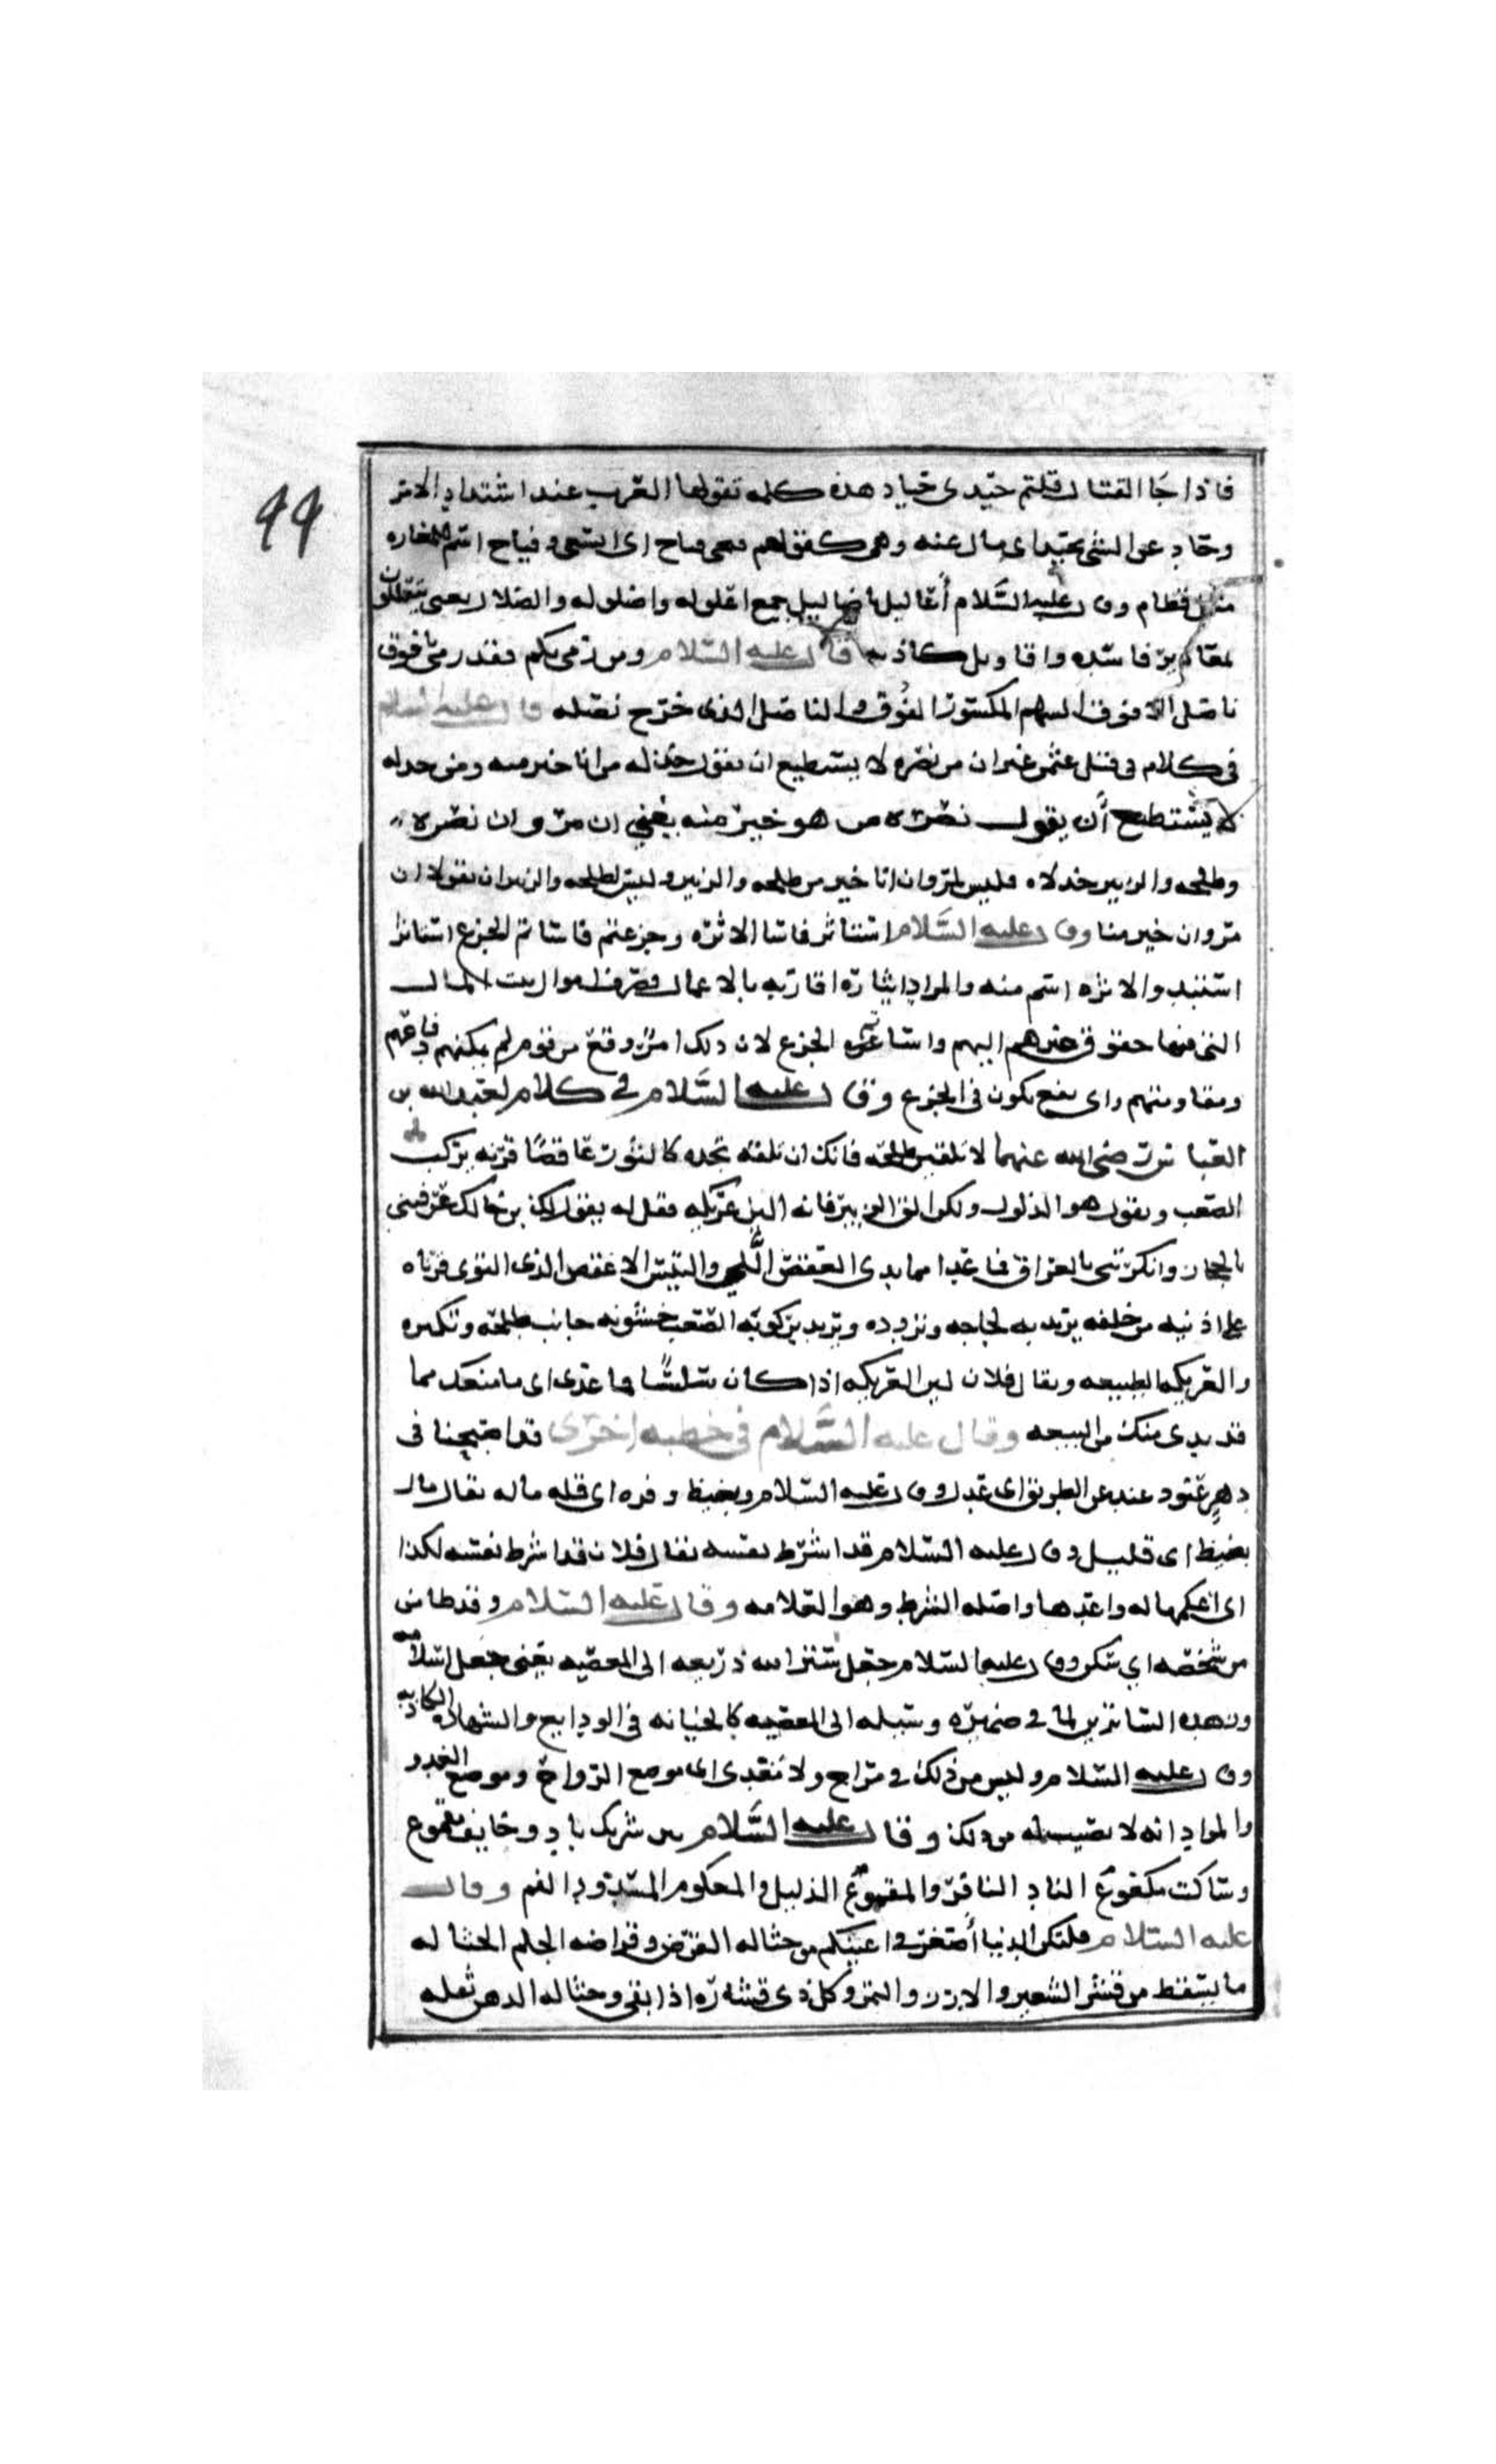 ٩٩
فاذا جا القتال قلتم حيدى حياد هذه كلمه تقولها العرب عند اشتداد الامر
وحاد عن الشى يحيد اى مال عنه وهى كقولهم فيحى فياح اى اتسعى وفياح اسم للغاره
مثل قطام وقال عليه السلام أعاليل باضاليل جمع اعلوله واضلوله والضلال يعنى يتعللون
بمعاذير فاسده واقاويل كاذبه قال عليه السلام ومن رمى بكم فقد رمى بافوق
ناصل الافوف السهم المكسور الفوق والناصل الذى خرج نصله قال عليه السلام
فى كلام فى قتل عثمن غير ان من نصره لا يستطيع ان يقول خذله من انا خير منه ومن خذله
لا يستطيع أن يقول نصره من هو خير منه يعني ان مروان نصره
وطلحه والزبير خذلاه فليس لمروان انا خير من طلحه والزبير وليس لطلحه والزبير ان يقولا ان
مروان خير منا وقال عليه السلام استاثر فاسا الاثره وجزعتم فاساتم الجزع استاثر
استبد والاثره اسم منه والمراد ايثاره اقاربه بالاعمال وصرف اموال بيت المال
التى فيها حقوق غيرهم اليهم واساتهم الجزع لان ذلك امر وقع من قوم لم يمكنهم دفاعهم
ومقاومتهم واى نفع يكون فى الجزع وقال عليه السلام فى كلام لعبد الله بن
العباس رضى الله عنهما لا تلقين طلحه فانك ان تلقه تجده كالثور عاقصا قرنه يركب
الصعب ويقول هو الذلول ولكن الق الزبير فانه الين عريكه فقل له يقول لك بن خالك عرفتنى
بالحجاز وانكرتنى بالعراق فما عدا مما بدى العقص اللي والتيس الاعقص الذى التوى قرناه
على اذنيه من خلفه يريد به لجاجه وتردده ويريد بركوبه الصعب خشونه جانب طلحه وتكبره
والعريكه الطبيعه ويقال فلان لين العريكه اذا كان سلسًا ما عدى اى ما منعك مما
قد بدى منك من البيعه وقال عليه السلام فى خطبه اخرى قد اصبحنا فى
دهرٍ عنود عند عن الطريق اى عدل وقال عليه السلام وبضيظ وفره اى قله ماله يقال مال
بضيظ اى قليل وقال عليه السلام قد اشرط نفسه يقال فلان قد اشرط نفسه لكذا
اى اعلمها له واعدها واصله الشرط وهو العلامه وقال عليه السلام وقد طامن
من شخصه اي سكن وقال عليه السلام جعل ستر الله ذريعه الى المعصيه يعنى جعل اسلامه
وزهده الساترين لما فى ضميره وسيله الى المعصيه كالخيانه فى الودايع والشهاده الكاذبه
وقال عليه السلام وليس من ذلك فى مراح ولا مغدى اى موضع الرواح وموضع الغدو
والمراد انه لا نصيب له من ذلك وقال عليه السلام بين شريك باد وخايف مقموع
وساكت مكعوم الناد النافر والمقموع الذليل والمعكوم المسدود الفم وقال
عليه السلام فلتكن الدنيا أصغر فى اعينكم من حثاله القرض وقراضه الجلم الحثاله
ما يسقط من قشر الشعير والارز والتمر وكل ذى قشاره اذا نقى وحثاله الدهن ثفله